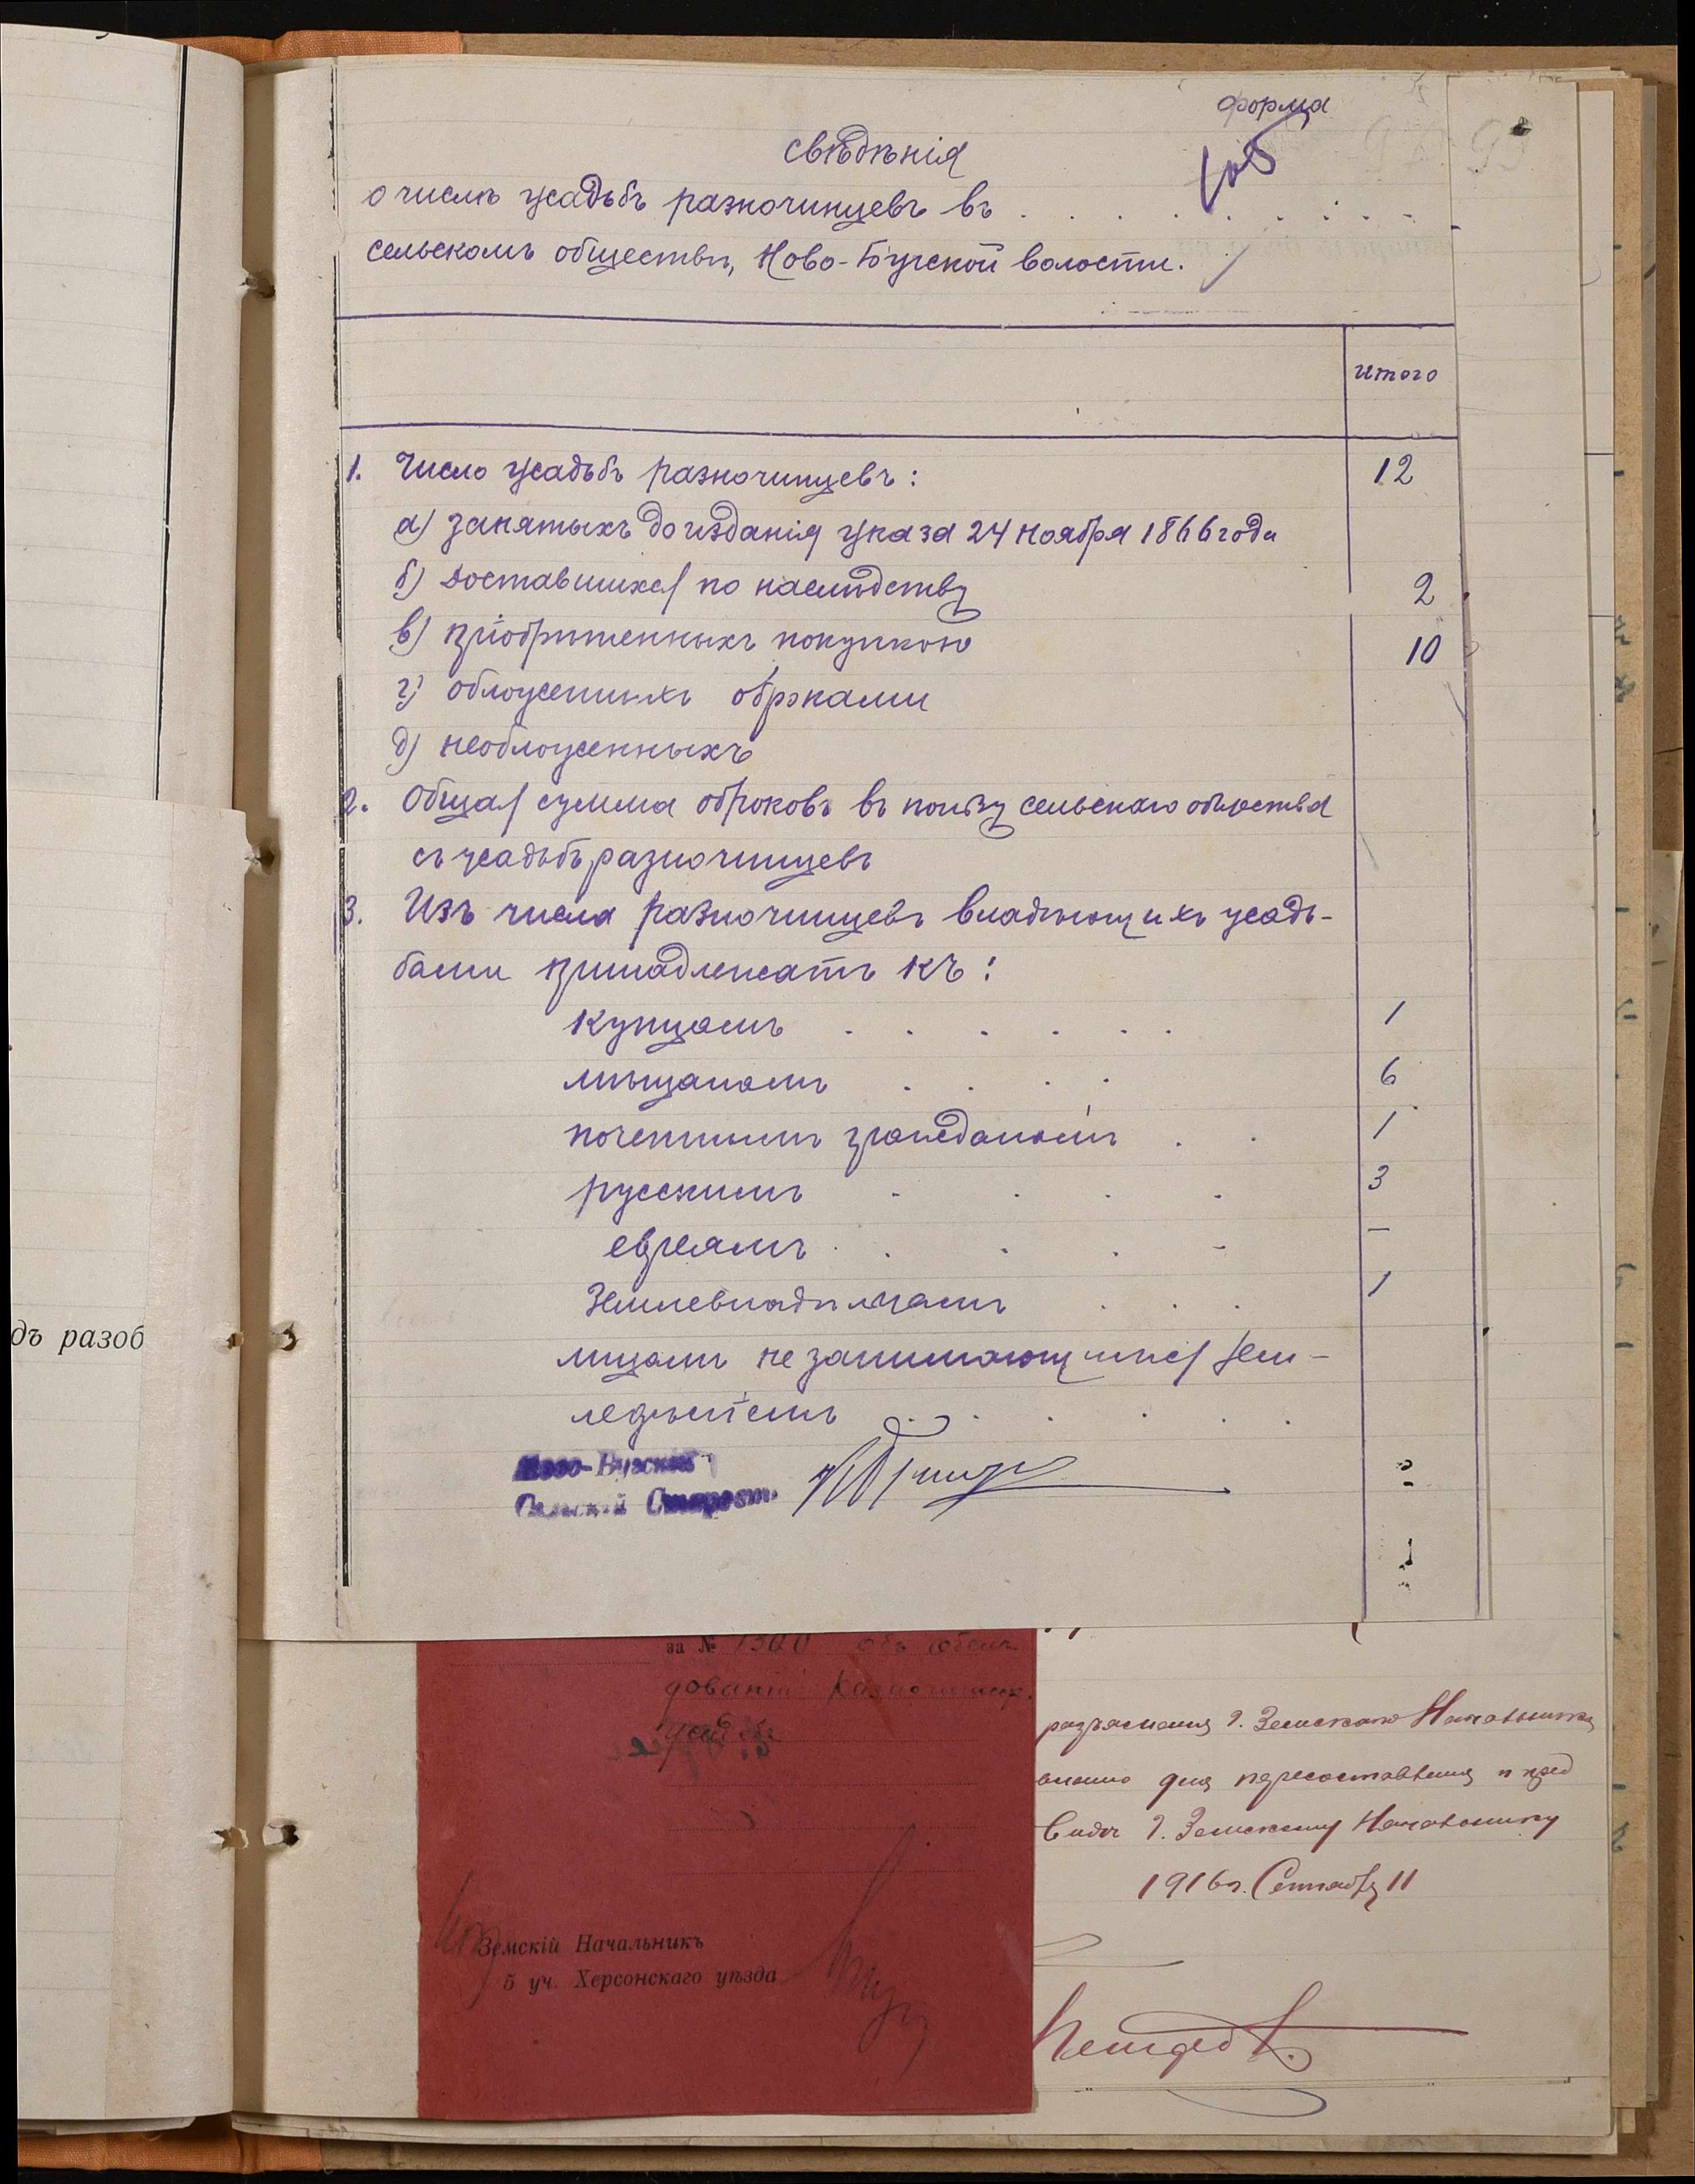 форма
свѣдѣнія
о числѣ усадьбъ разночинцевъ въ . . . . . . . .
сельскомъ обществѣ, Ново-Бугской волости.
итого
1. Число усадьбъ разночинцевъ: 12
а) занятыхъ до изданія указа 24 ноября 1866 года
б) доставшихся по наслѣдству 2
в) пріобрѣтенныхъ покупкою 10
г) обложенныхъ оброками
д) необложенныхъ
2. Общая сумма оброковъ въ пользу сельскаго общества
съ усадьбъ разночинцевъ
3. Изъ числа разночинцевъ владѣющихъ усадь-
бами принадлежатъ къ:
купцамъ . . . . . . 1
мѣщанамъ . . . . 6
почетнымъ гражданамъ . . 1
русскимъ . . . . 3
евреямъ . . . . . —
Землевладѣльцамъ . . . 1
лицамъ не занимающимся зем-
ледѣліемъ . . . . . .
Ново-Бугскій
Сельскій Староста
дъ разоб
за № 1300 объ обслѣ
дованіи разночинч.
усадьбъ
Земскій Начальникъ
5 уч. Херсонскаго уѣзда
разъясненія Г. Земскаго Начальника
для пересоставленія и пред
Г. Земскому Начальнику
1916 г. Сентября 11